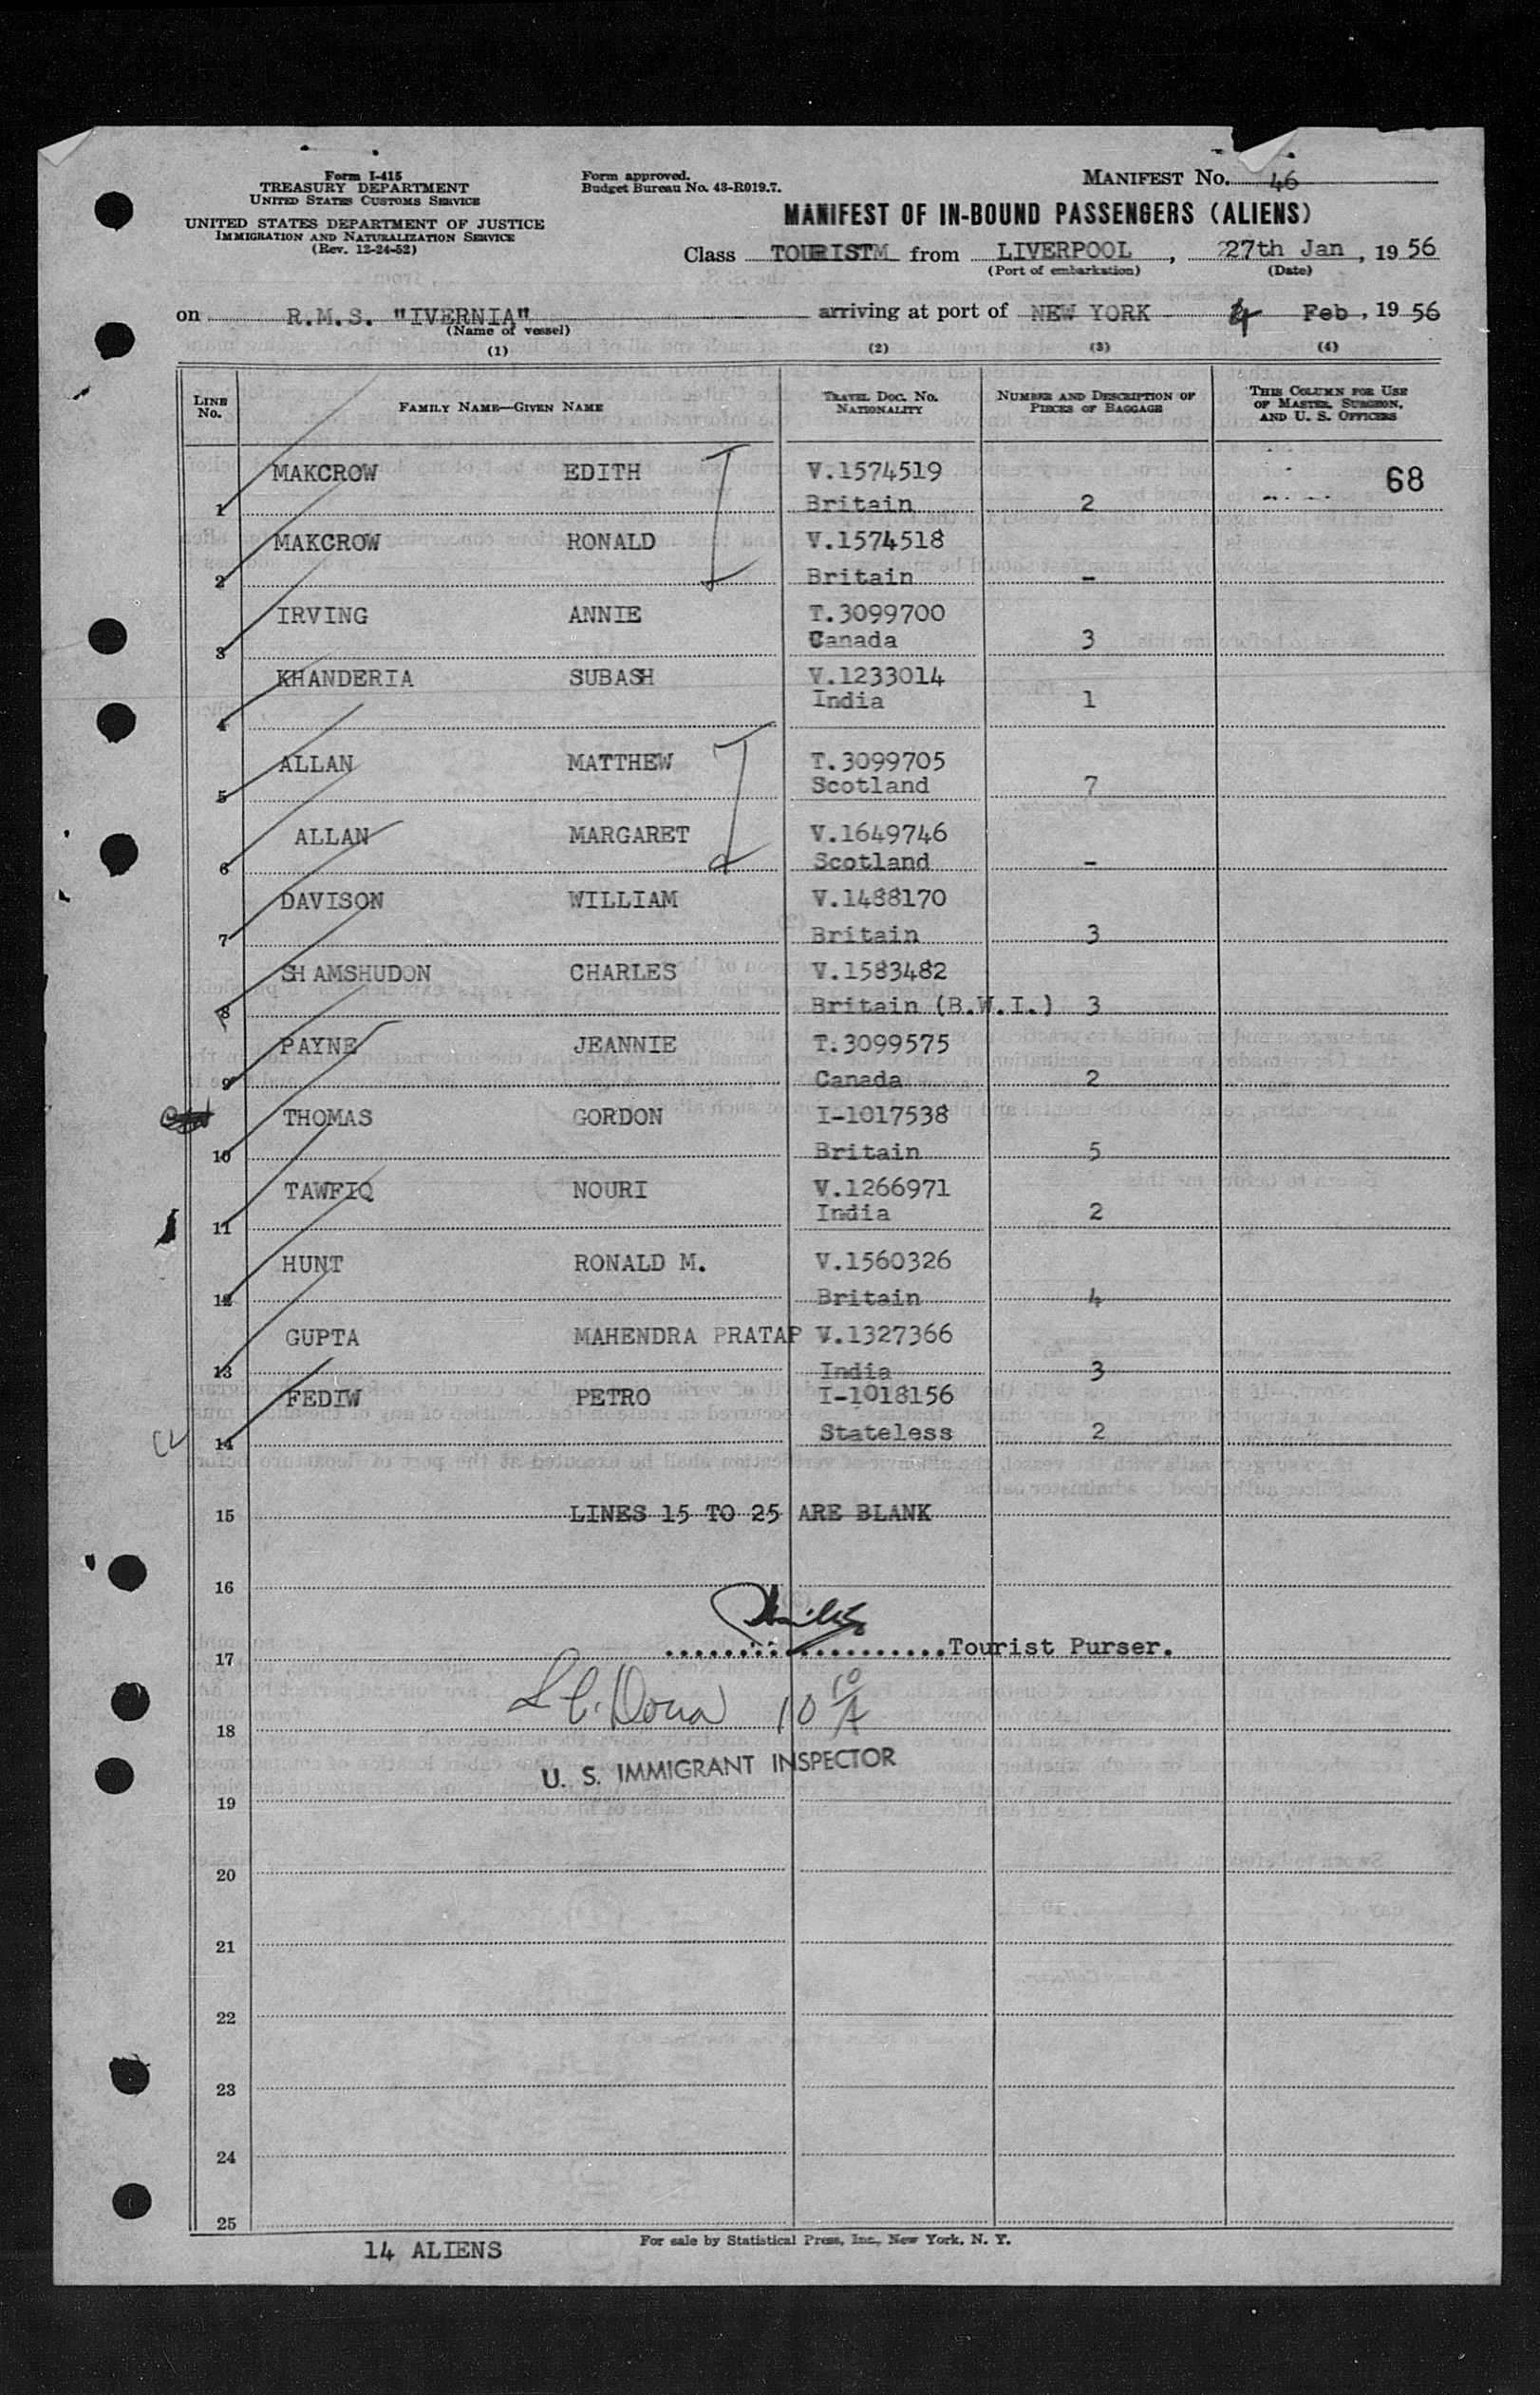 Form I-415
TREASURY DEPARTMENT
UNITED STATES CUSTOMS SERVICE
UNITED STATES DEPARTMENT OF JUSTICE
IMMIGRATION AND NATURALIZATION SERVICE
(Rev. 12-24-52)
Form approved.
Budget Bureau No. 43-R019.7.
MANIFEST NO. 46
MANIFEST OF IN-BOUND PASSENGERS (ALIENS)
Class TOURIST from LIVERPOOL, 27th Jan, 19 56
(Port of embarkation) (Date)
on R.M.S. "IVERNIA" arriving at port of NEW YORK 4 Feb, 19 56
(Name of vessel)
(1) (2) (3) (4)
LINE NO. FAMILY NAME—GIVEN NAME TRAVEL DOC. NO. NATIONALITY NUMBER AND DESCRIPTION OF PIECES OF BAGGAGE THIS COLUMN FOR USE OF MASTER, SURGEON, AND U. S. OFFICERS
MAKCROW EDITH V.1574519 68
1 Britain 2
MAKCROW RONALD V.1574518
2 Britain -
IRVING ANNIE T.3099700
3 Canada 3
KHANDERIA SUBASH V.1233014
India 1
4
ALLAN MATTHEW T.3099705
5 Scotland 7
ALLAN MARGARET V.1649746
6 Scotland -
DAVISON WILLIAM V.1488170
7 Britain 3
SHAMSHUDON CHARLES V.1583482
8 Britain (B.W.I.) 3
PAYNE JEANNIE T.3099575
9 Canada 2
THOMAS GORDON I-1017538
10 Britain 5
TAWFIQ NOURI V.1266971
11 India 2
HUNT RONALD M. V.1560326
12 Britain 4
GUPTA MAHENDRA PRATAP V.1327366
13 India 3
FEDIW PETRO I-1018156
14 Stateless 2
15 LINES 15 TO 25 ARE BLANK
16
17 ....................Tourist Purser.
18
U. S. IMMIGRANT INSPECTOR
19
20
21
22
23
24
25
14 ALIENS
For sale by Statistical Press, Inc., New York, N. Y.